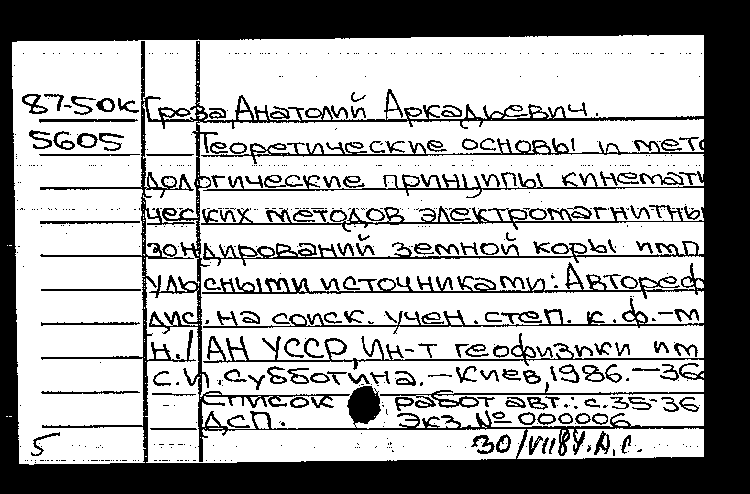 87-50к Греза, Анатолий Аркадьевич.
5605 Теоретические основы и мето
дологические принципы кинемати
ческих методов электромагнитны
зондирований земной коры имп
ульсными источниками: Автореф
дис. на соиск. учен. степ. к. ф.-м
н. / АН УССР, Ин-т геофизики им
С.И. Субботина. — Киев, 1986. — 36с
Список работ авт.: с. 35-36
ДСП. Экз. № 000006.
5 30/VII 87. А.С.